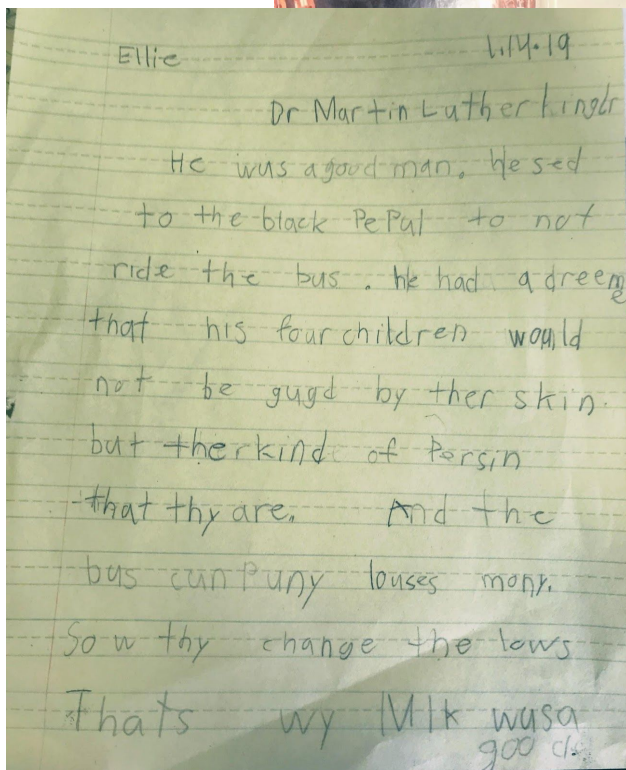 Ellie 1.14.19
Dr Martin Luther king Jr
He wus a good man. He sed
to the black PePul to not
ride the bus. he had a dreem
e
that his four children would
not be gugd by ther skin.
but the kind of Persin
that thy are. And the
bus cunPuny louses mony.
So thy change the lows
Thats wy Mlk wus a
goo